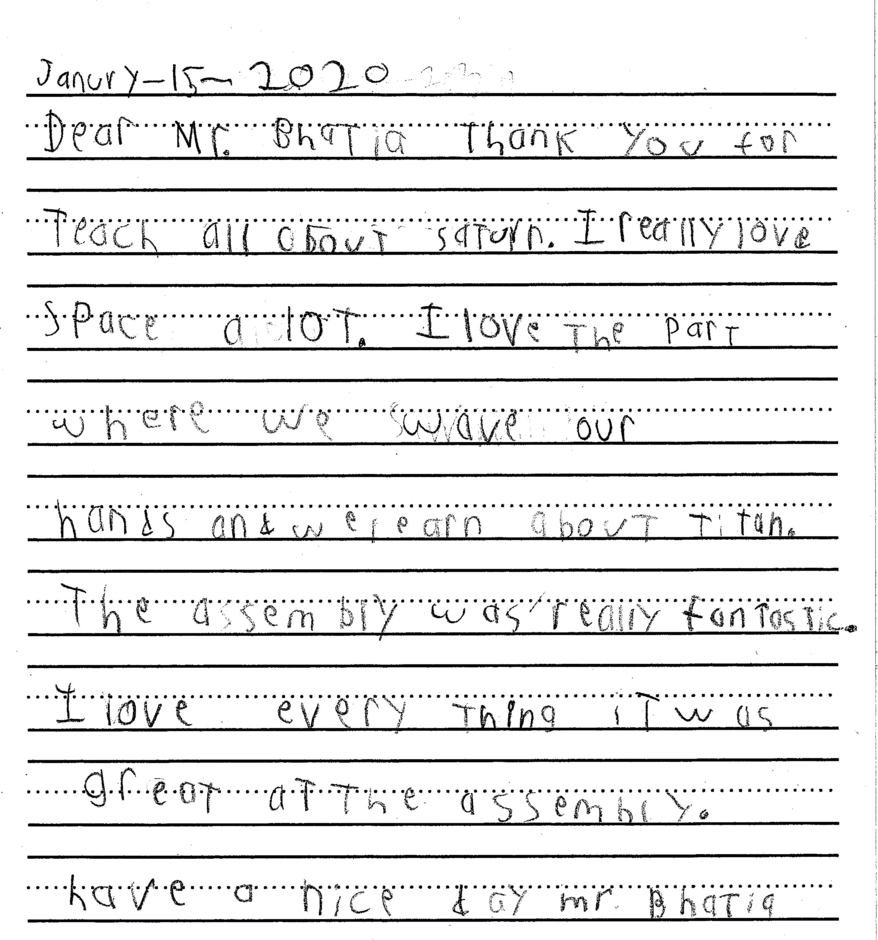 Janury-15-2020
Dear Mr. Bhatia Thank You for
Teach all about saturn. I really love
space a lot. I love the part
where we wave our
hands and we learn about Titan.
The assembly was really fantastic.
I love every thing it was
great at the assembly.
have a nice day mr. Bhatia